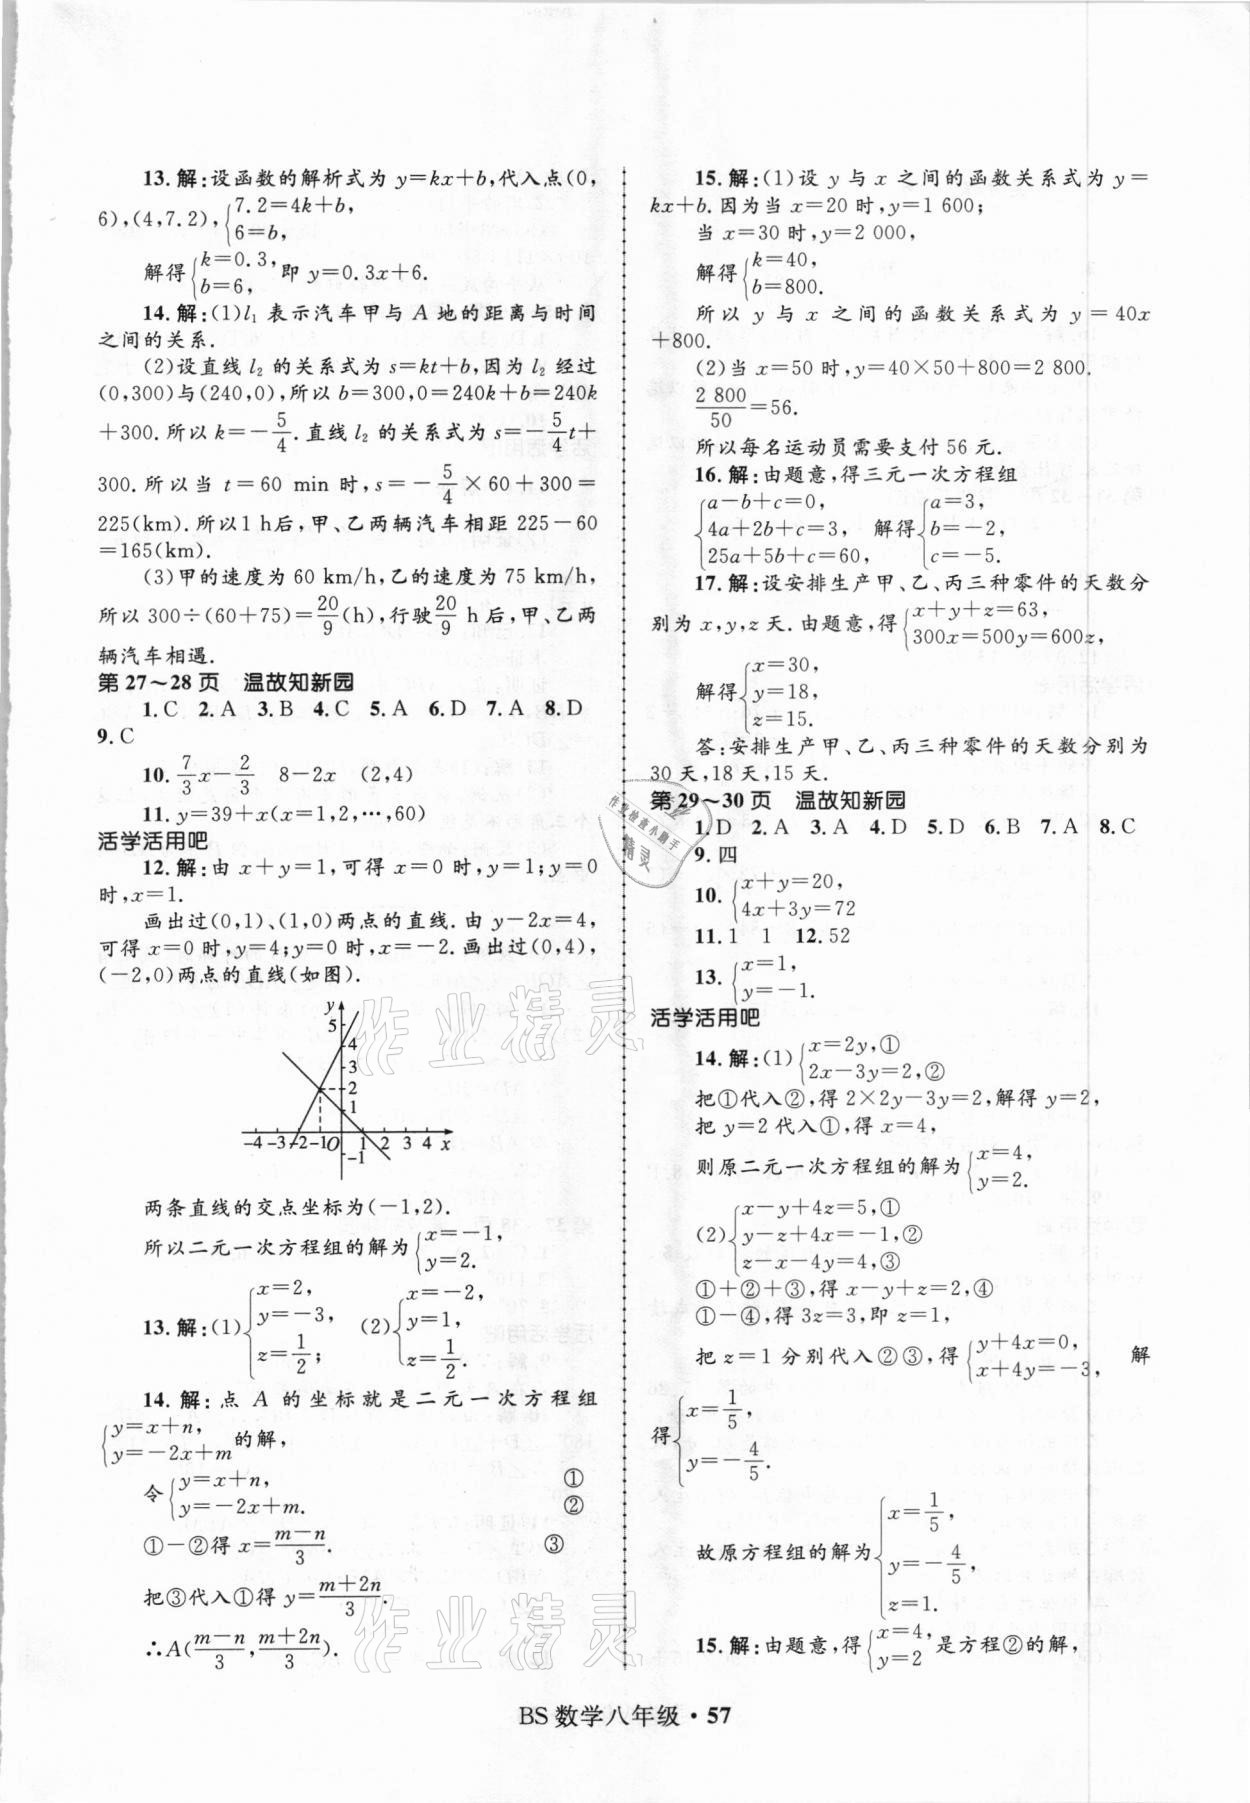 13.解:设函数的解析式为 y=kx+b,代入点(0,
6),(4,7.2),{7.2=4k+b,
6=b,
解得{k=0.3,
b=6,
即 y=0.3x+6.
14.解:(1)l₁ 表示汽车甲与 A 地的距离与时间
之间的关系.
(2)设直线 l₂ 的关系式为 s=kt+b,因为 l₂ 经过
(0,300)与(240,0),所以 b=300,0=240k+b=240k
+300.所以 k=-5/4.直线 l₂ 的关系式为 s=-5/4t+
300.所以当 t=60 min 时,s=-5/4×60+300=
225(km).所以1 h后,甲、乙两辆汽车相距 225-60
=165(km).
(3)甲的速度为 60 km/h,乙的速度为 75 km/h,
所以 300÷(60+75)=20/9(h),行驶20/9 h 后,甲、乙两
辆汽车相遇.
第27~28页 温故知新园
1.C 2.A 3.B 4.C 5.A 6.D 7.A 8.D
9.C
10. 7/3x-2/3 8-2x (2,4)
11.y=39+x(x=1,2,…,60)
活学活用吧
12.解:由 x+y=1,可得 x=0 时,y=1;y=0
时,x=1.
画出过(0,1)、(1,0)两点的直线.由 y-2x=4,
可得 x=0 时,y=4;y=0 时,x=-2.画出过(0,4),
(-2,0)两点的直线(如图).
y
5
4
3
2
1
-4 -3 -2 -1 O 1 2 3 4 x
-1
两条直线的交点坐标为(-1,2).
所以二元一次方程组的解为{x=-1,
y=2.
13.解:(1){x=2,
y=-3,
z=1/2;
(2){x=-2,
y=1,
z=1/2.
14.解:点 A 的坐标就是二元一次方程组
{y=x+n,
y=-2x+m
的解,
令{y=x+n, ①
y=-2x+m. ②
①-②得 x=(m-n)/3. ③
把③代入①得 y=(m+2n)/3.
∴A((m-n)/3,(m+2n)/3).
15.解:(1)设 y 与 x 之间的函数关系式为 y=
kx+b.因为当 x=20 时,y=1 600;
当 x=30 时,y=2 000,
解得{k=40,
b=800.
所以 y 与 x 之间的函数关系式为 y=40x
+800.
(2)当 x=50 时,y=40×50+800=2 800.
2 800/50=56.
所以每名运动员需要支付 56 元.
16.解:由题意,得三元一次方程组
{a-b+c=0,
4a+2b+c=3,
25a+5b+c=60,
解得{a=3,
b=-2,
c=-5.
17.解:设安排生产甲、乙、丙三种零件的天数分
别为 x,y,z 天.由题意,得{x+y+z=63,
300x=500y=600z,
解得{x=30,
y=18,
z=15.
答:安排生产甲、乙、丙三种零件的天数分别为
30 天,18 天,15 天.
第29~30页 温故知新园
1.D 2.A 3.A 4.D 5.D 6.B 7.A 8.C
9.四
10.{x+y=20,
4x+3y=72
11.1 1 12.52
13.{x=1,
y=-1.
活学活用吧
14.解:(1){x=2y,①
2x-3y=2,②
把①代入②,得 2×2y-3y=2,解得 y=2,
把 y=2 代入①,得 x=4,
则原二元一次方程组的解为{x=4,
y=2.
(2){x-y+4z=5,①
y-z+4x=-1,②
z-x-4y=4,③
①+②+③,得 x-y+z=2,④
①-④,得 3z=3,即 z=1,
把 z=1 分别代入②③,得{y+4x=0,
x+4y=-3,
解
得{x=1/5,
y=-4/5.
故原方程组的解为{x=1/5,
y=-4/5,
z=1.
15.解:由题意,得{x=4,
y=2
是方程②的解,
作业检查小助手
精灵
作业精灵
作业精灵
BS 数学八年级·57